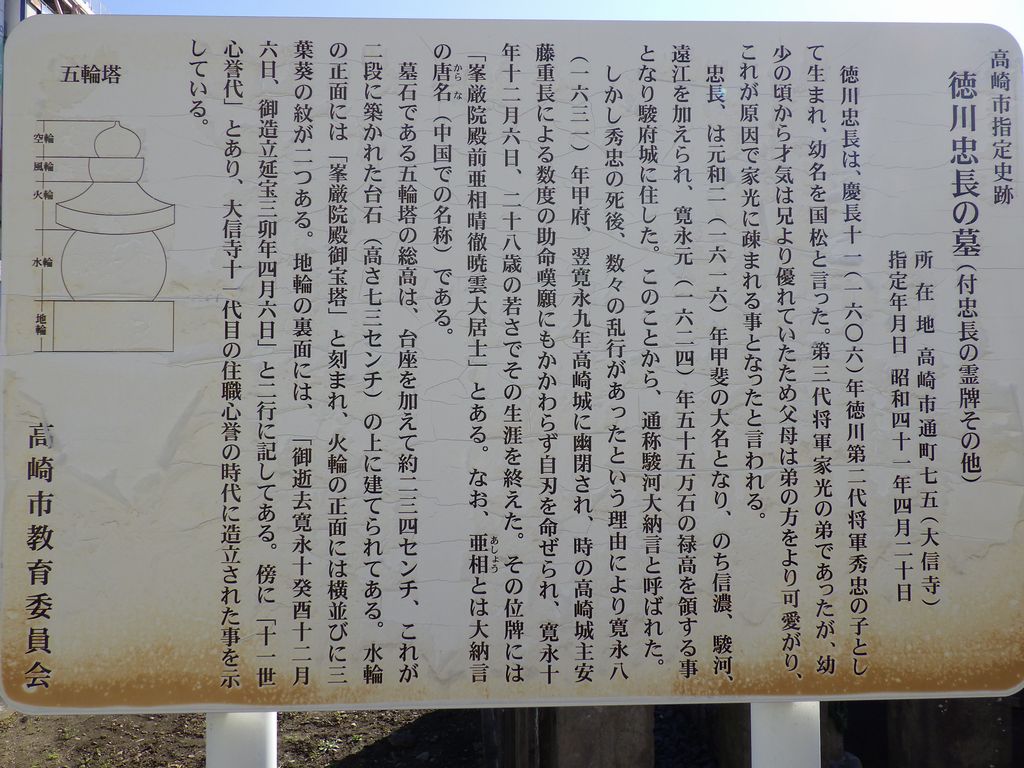 高崎市指定史跡
徳川忠長の墓（付忠長の霊牌その他）
所在地 高崎市通町七五（大信寺）
指定年月日 昭和四十一年四月二十日
徳川忠長は、慶長十一（一六〇六）年徳川第二代将軍秀忠の子とし
て生まれ、幼名を国松と言った。第三代将軍家光の弟であったが、幼
少の頃から才気は兄より優れていたため父母は弟の方をより可愛がり、
これが原因で家光に疎まれる事となったと言われる。
忠長、は元和二（一六一六）年甲斐の大名となり、のち信濃、駿河、
遠江を加えられ、寛永元（一六二四）年五十五万石の禄高を領する事
となり駿府城に住した。このことから、通称駿河大納言と呼ばれた。
しかし秀忠の死後、数々の乱行があったという理由により寛永八
（一六三一）年甲府、翌寛永九年高崎城に幽閉され、時の高崎城主安
藤重長による数度の助命嘆願にもかかわらず自刃を命ぜられ、寛永十
年十二月六日、二十八歳の若さでその生涯を終えた。その位牌には
「峯厳院殿前亜相晴徹暁雲大居士」とある。なお、亜相とは大納言
あしょう
の唐名（中国での名称）である。
からな
墓石である五輪塔の総高は、台座を加えて約二三四センチ、これが
二段に築かれた台石（高さ七三センチ）の上に建てられてある。水輪
の正面には「峯厳院殿御宝塔」と刻まれ、火輪の正面には横並びに三
葉葵の紋が二つある。地輪の裏面には、「御逝去寛永十癸酉十二月
六日、御造立延宝三卯年四月六日」と二行に記してある。傍に「十一世
心誉代」とあり、大信寺十一代目の住職心誉の時代に造立された事を示
している。
五輪塔
空輪
風輪
火輪
水輪
地輪
高崎市教育委員会